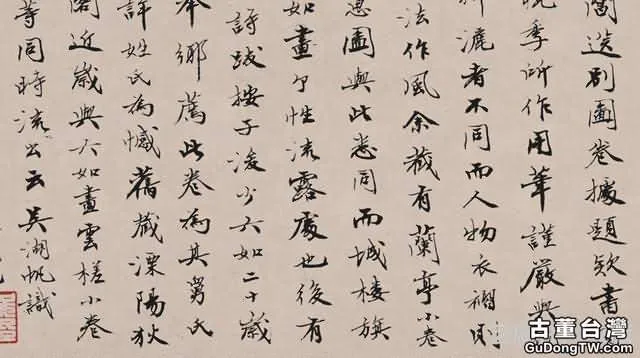 閶送別圖卷據題欵書
季所作用筆謹嚴與
漓者不同而人物衣褶則
法作風余藏有蘭亭小卷
圖與此悉同而城樓旗
如畫个性流露處也後有
詩跋按子浚少六如二十歲
舉鄉薦此卷為其舅氏
詳姓氏為憾舊藏溧陽狄
閣近歲與六如畫雲槎小卷
等同時流出云吳湖帆識
古董台灣
GuDongTW.com